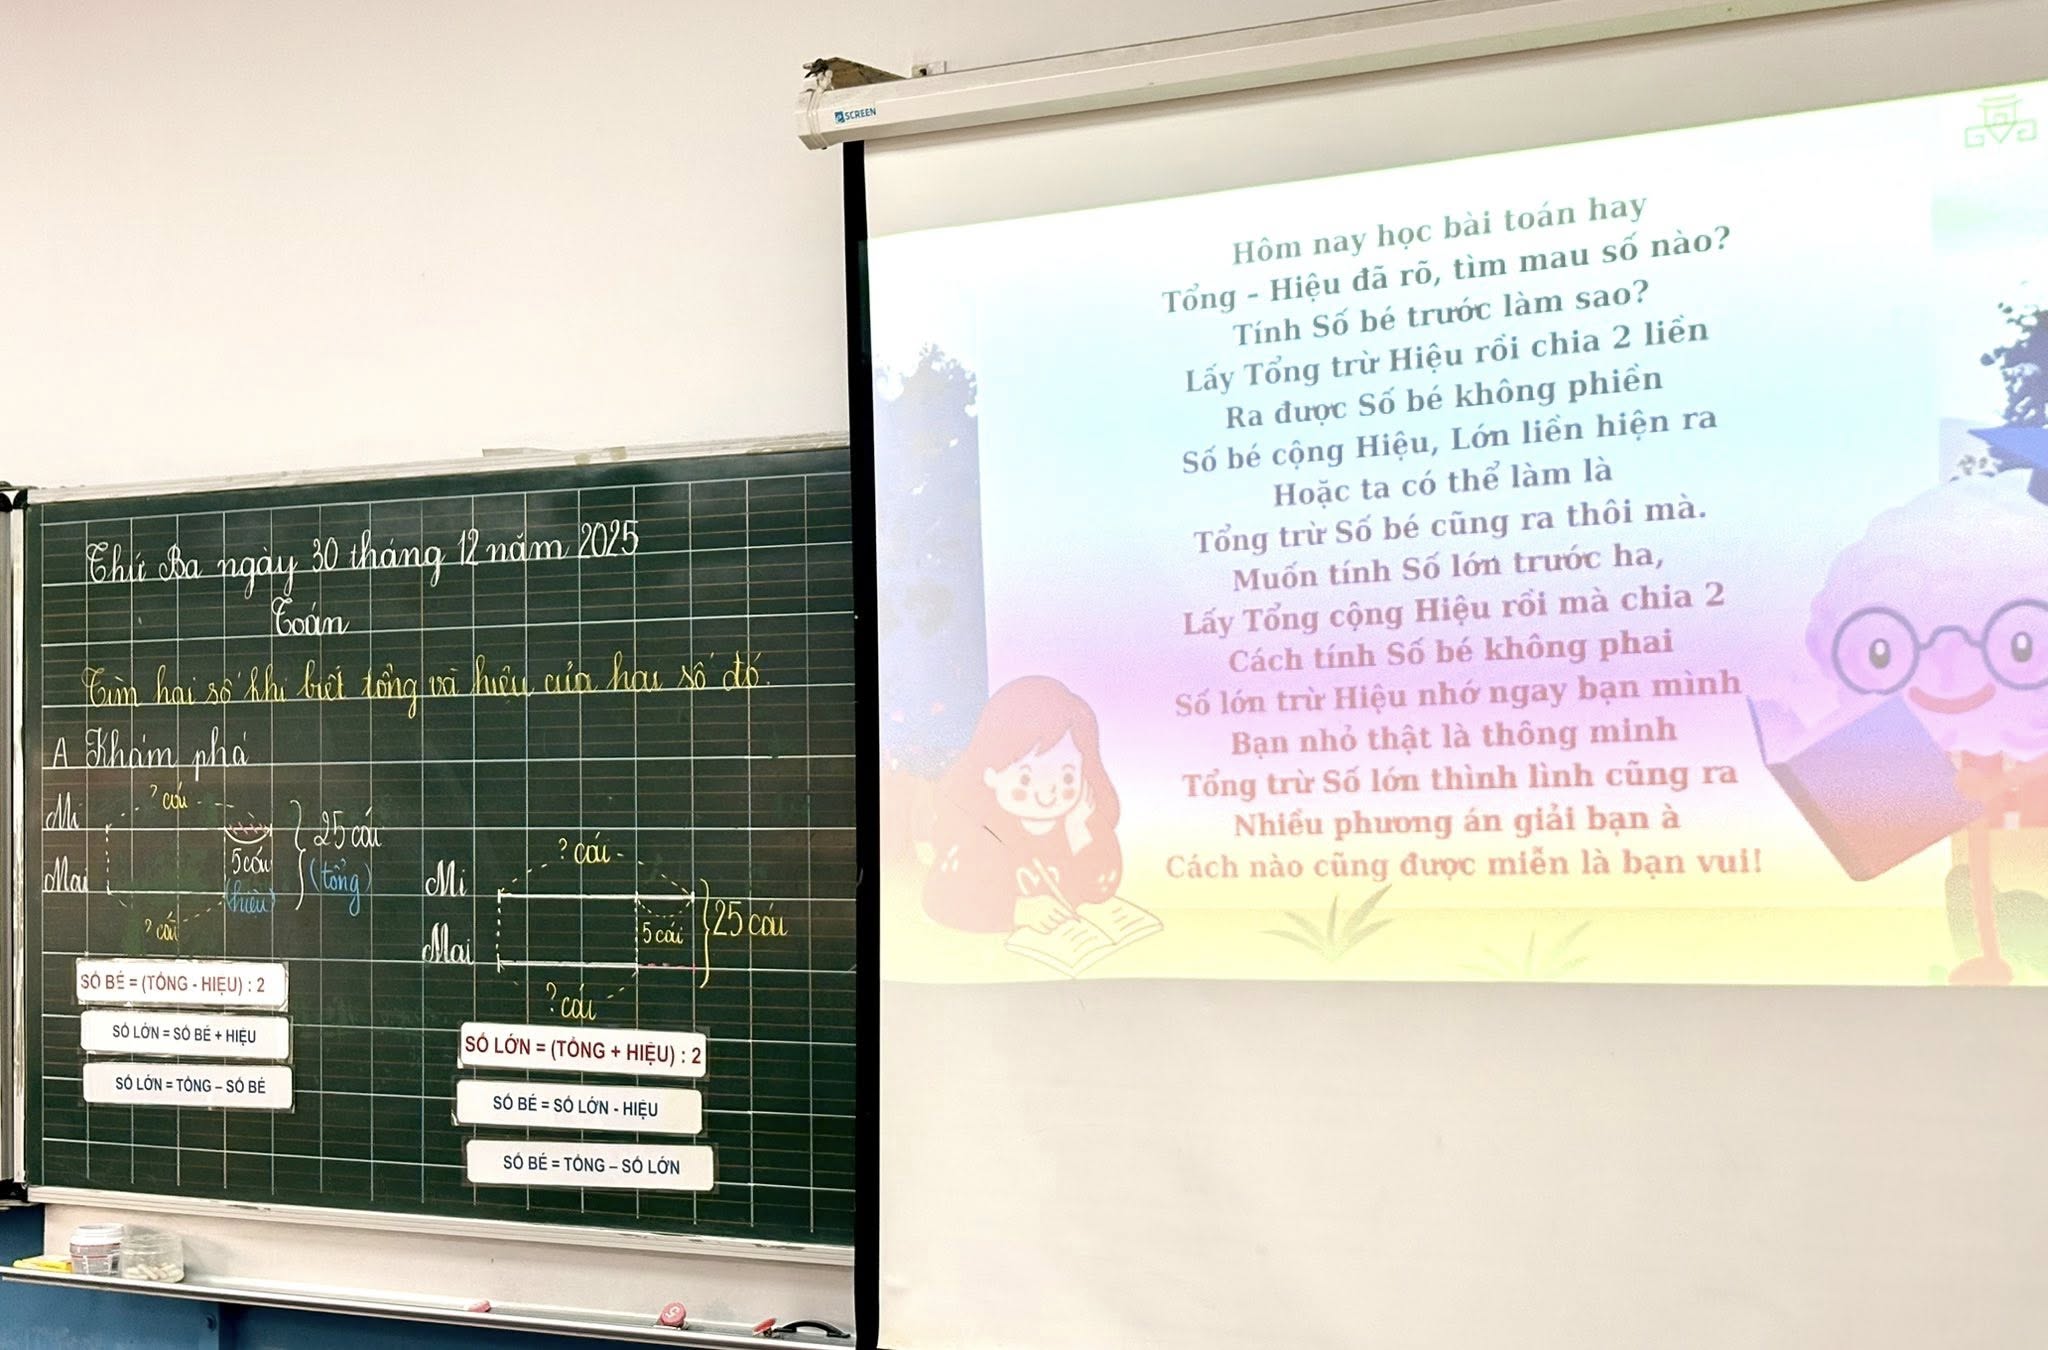 Thứ Ba ngày 30 tháng 12 năm 2025
Toán
Tìm hai số khi biết tổng và hiệu của hai số đó.
A Khám phá
? cái
Mi
5 cái
(hiệu)
25 cái
(tổng)
Mai
? cái
SỐ BÉ = (TỔNG - HIỆU) : 2
SỐ LỚN = SỐ BÉ + HIỆU
SỐ LỚN = TỔNG – SỐ BÉ
? cái
Mi
5 cái
25 cái
Mai
? cái
SỐ LỚN = (TỔNG + HIỆU) : 2
SỐ BÉ = SỐ LỚN - HIỆU
SỐ BÉ = TỔNG – SỐ LỚN
SCREEN
Hôm nay học bài toán hay
Tổng - Hiệu đã rõ, tìm mau số nào?
Tính Số bé trước làm sao?
Lấy Tổng trừ Hiệu rồi chia 2 liền
Ra được Số bé không phiền
Số bé cộng Hiệu, Lớn liền hiện ra
Hoặc ta có thể làm là
Tổng trừ Số bé cũng ra thôi mà.
Muốn tính Số lớn trước ha,
Lấy Tổng cộng Hiệu rồi mà chia 2
Cách tính Số bé không phai
Số lớn trừ Hiệu nhớ ngay bạn mình
Bạn nhỏ thật là thông minh
Tổng trừ Số lớn thình lình cũng ra
Nhiều phương án giải bạn à
Cách nào cũng được miễn là bạn vui!